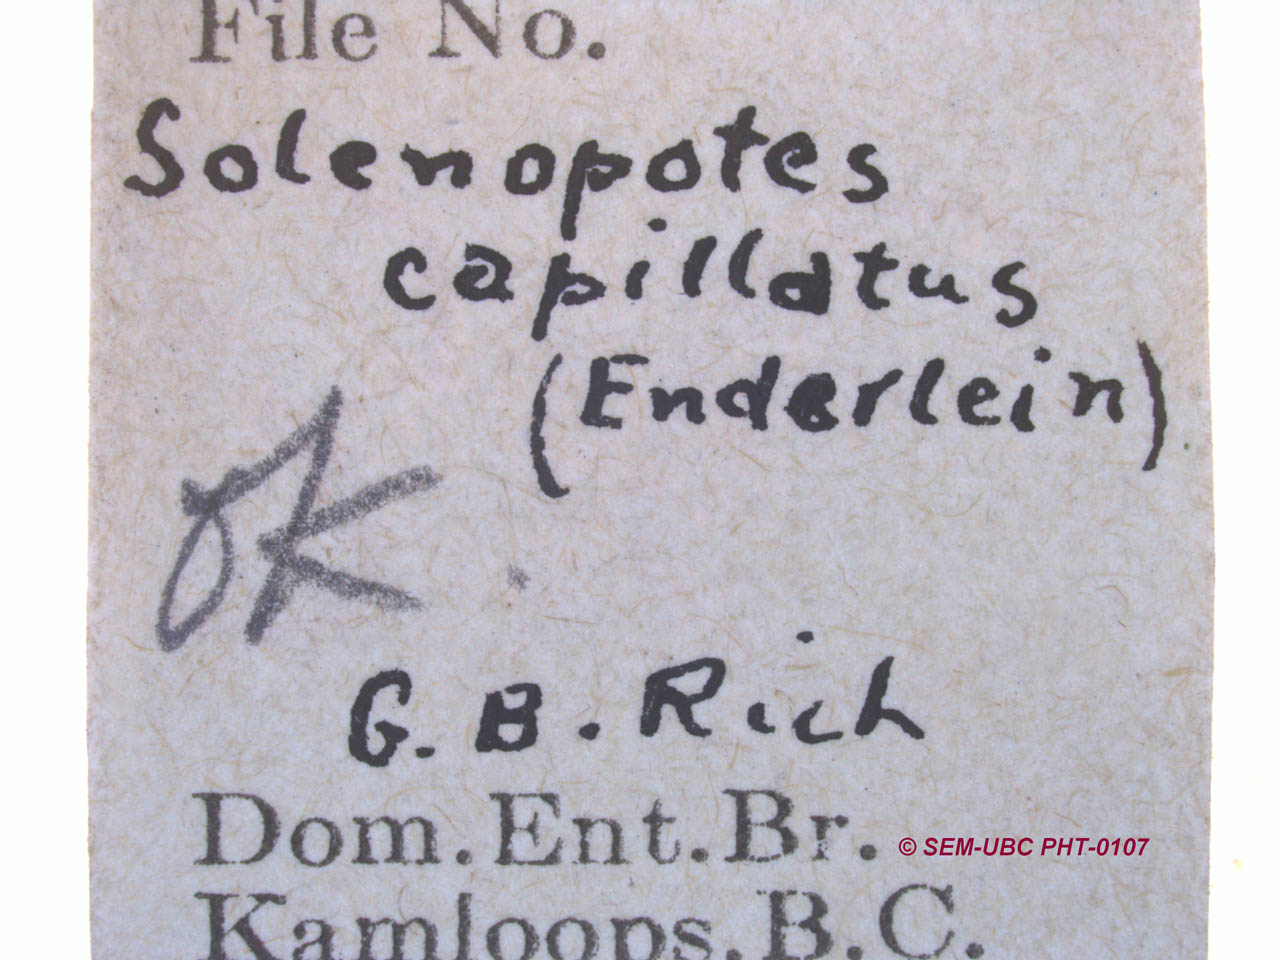 File No.
Solenopotes
capillatus
(Enderlein)
OK.
G. B. Rich
Dom. Ent. Br.
© SEM-UBC PHT-0107
Kamloops, B.C.